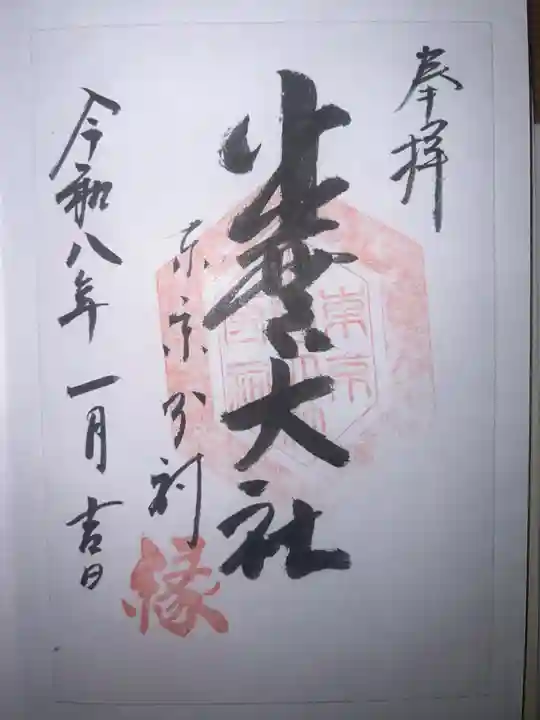 奉拝
出雲大社
東京分祠
縁
令和八年一月吉日
東京